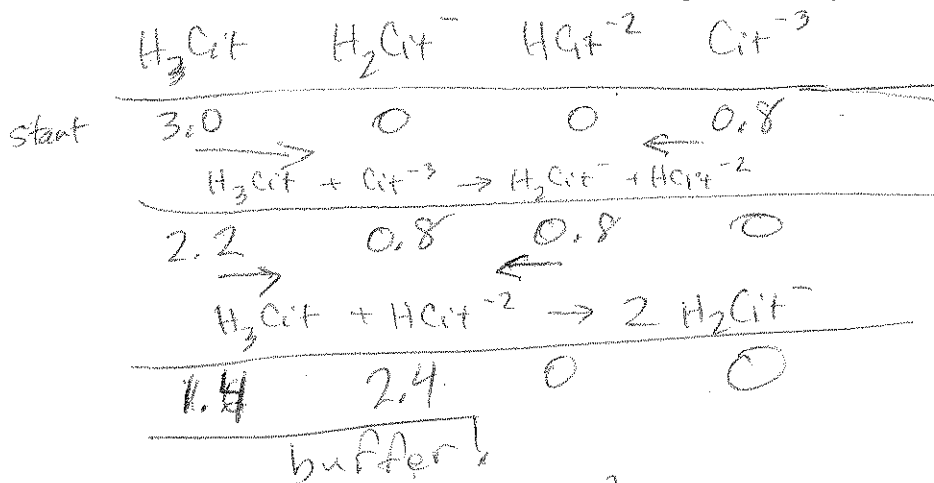 H₃Cit H₂Cit⁻ HCit⁻² Cit⁻³
start 3.0 0 0 0.8
H₃Cit + Cit⁻³ → H₂Cit⁻ + HCit⁻²
2.2 0.8 0.8 0
H₃Cit + HCit⁻² → 2 H₂Cit⁻
1.4 2.4 0 0
buffer!